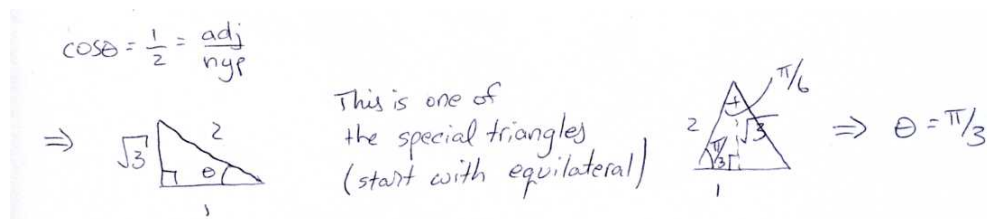 cosθ = 1/2 = adj/hyp
⇒ √3 2 θ 1
This is one of
the special triangles
(start with equilateral)
2 π/6 √3 π/3 1
⇒ θ = π/3